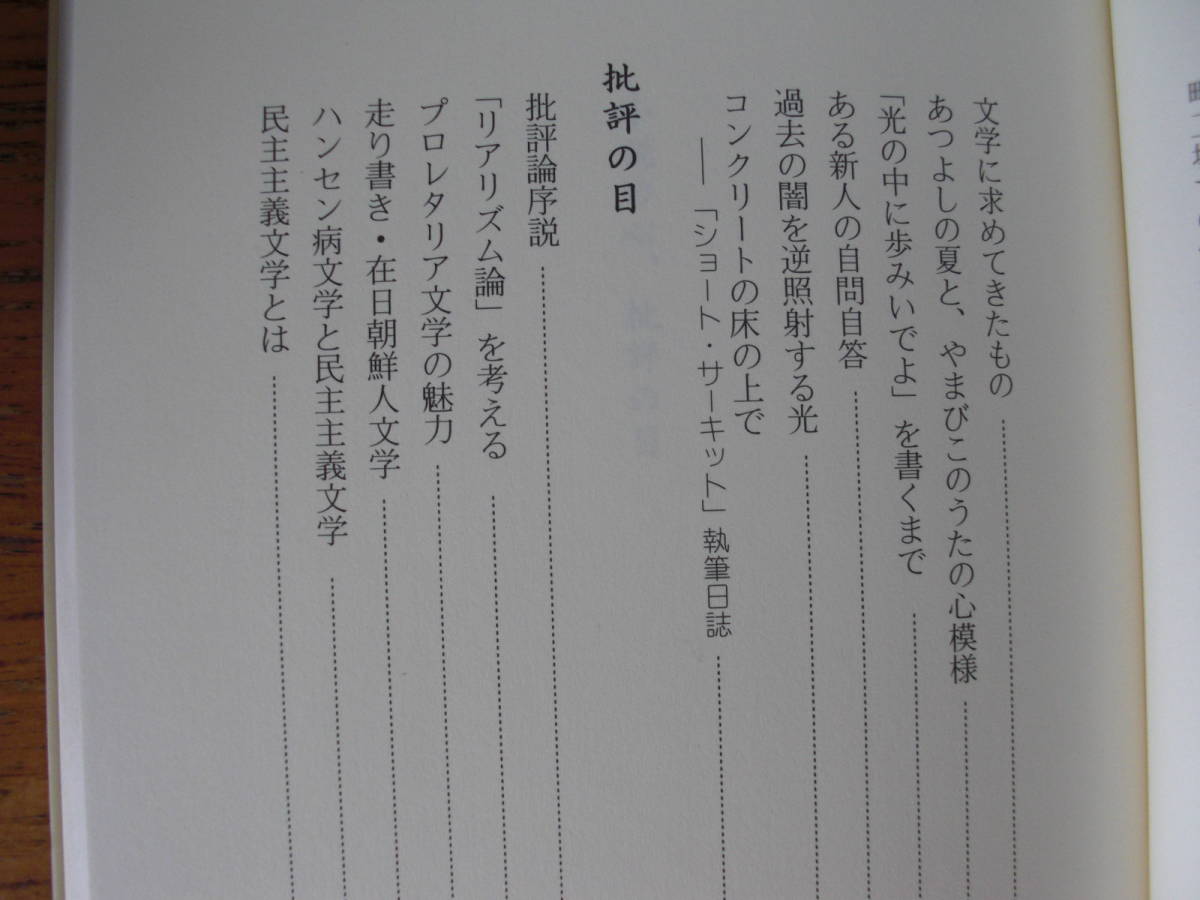 文学に求めてきたもの
あつよしの夏と、やまびこのうたの心模様
「光の中に歩みいでよ」を書くまで
ある新人の自問自答
過去の闇を逆照射する光
コンクリートの床の上で
――「ショート・サーキット」執筆日誌
批評の目
批評論序説
「リアリズム論」を考える
プロレタリア文学の魅力
走り書き・在日朝鮮人文学
ハンセン病文学と民主主義文学
民主主義文学とは